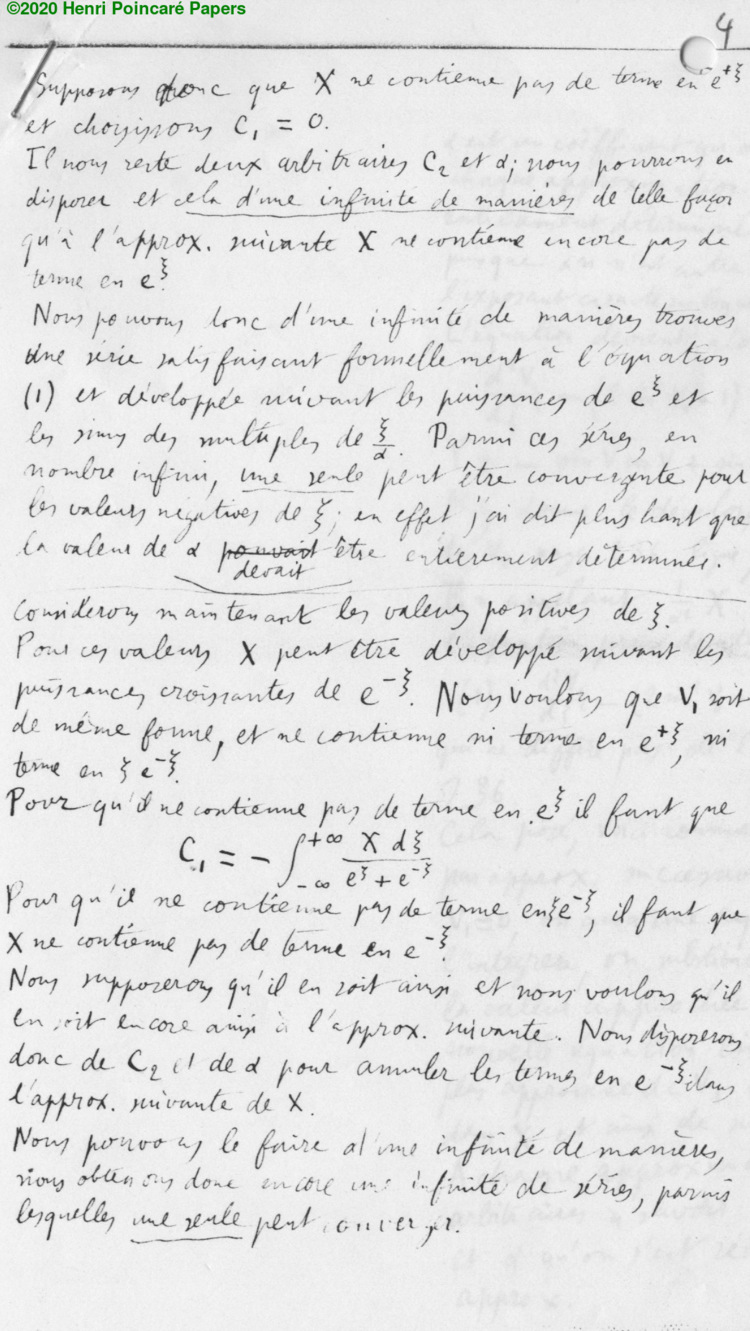 ©2020 Henri Poincaré Papers
4
Supposons donc que X ne contienne pas de terme en e^{+ξ}
et choisissons C₁ = 0.
Il nous reste deux arbitraires C₂ et α; nous pourrons en
disposer et cela d'une infinité de manières de telle façon
qu'à l'approx. suivante X ne contienne encore pas de
terme en e^ξ.
Nous pouvons donc d'une infinité de manières trouver
une série satisfaisant formellement à l'équation
(1) et développée suivant les puissances de e^ξ et
les sinus des multiples de ξ/α. Parmi ces séries, en
nombre infini, une seule peut être convergente pour
les valeurs négatives de ξ; en effet j'ai dit plus haut que
la valeur de α pouvait être entièrement déterminée.
devait
Considérons maintenant les valeurs positives de ξ.
Pour ces valeurs X peut être développé suivant les
puissances croissantes de e^{-ξ}. Nous voulons que V₁ soit
de même forme, et ne contienne ni terme en e^{+ξ}, ni
terme en ξe^{-ξ}.
Pour qu'il ne contienne pas de terme en e^ξ il faut que
C₁ = - ∫_{-∞}^{+∞} X dξ / (e^ξ + e^{-ξ})
Pour qu'il ne contienne pas de terme en ξe^{-ξ}, il faut que
X ne contienne pas de terme en e^{-ξ}.
Nous supposerons qu'il en soit ainsi et nous voulons qu'il
en soit encore ainsi à l'approx. suivante. Nous disposerons
donc de C₂ et de α pour annuler les termes en e^{-ξ} dans
l'approx. suivante de X.
Nous pouvons le faire d'une infinité de manières,
nous obtenons donc encore une infinité de séries, parmi
lesquelles une seule peut converger.